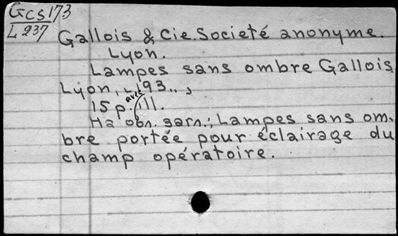 Gcs173
L237
Gallois & Cie Societé anonyme.
Lyon.
Lampes sans ombre Gallois
Lyon, 193..,
15 p. avec ill.
Ha obn. garn.: Lampes sans om-
bre portée pour éclairage du
champ opératoire.